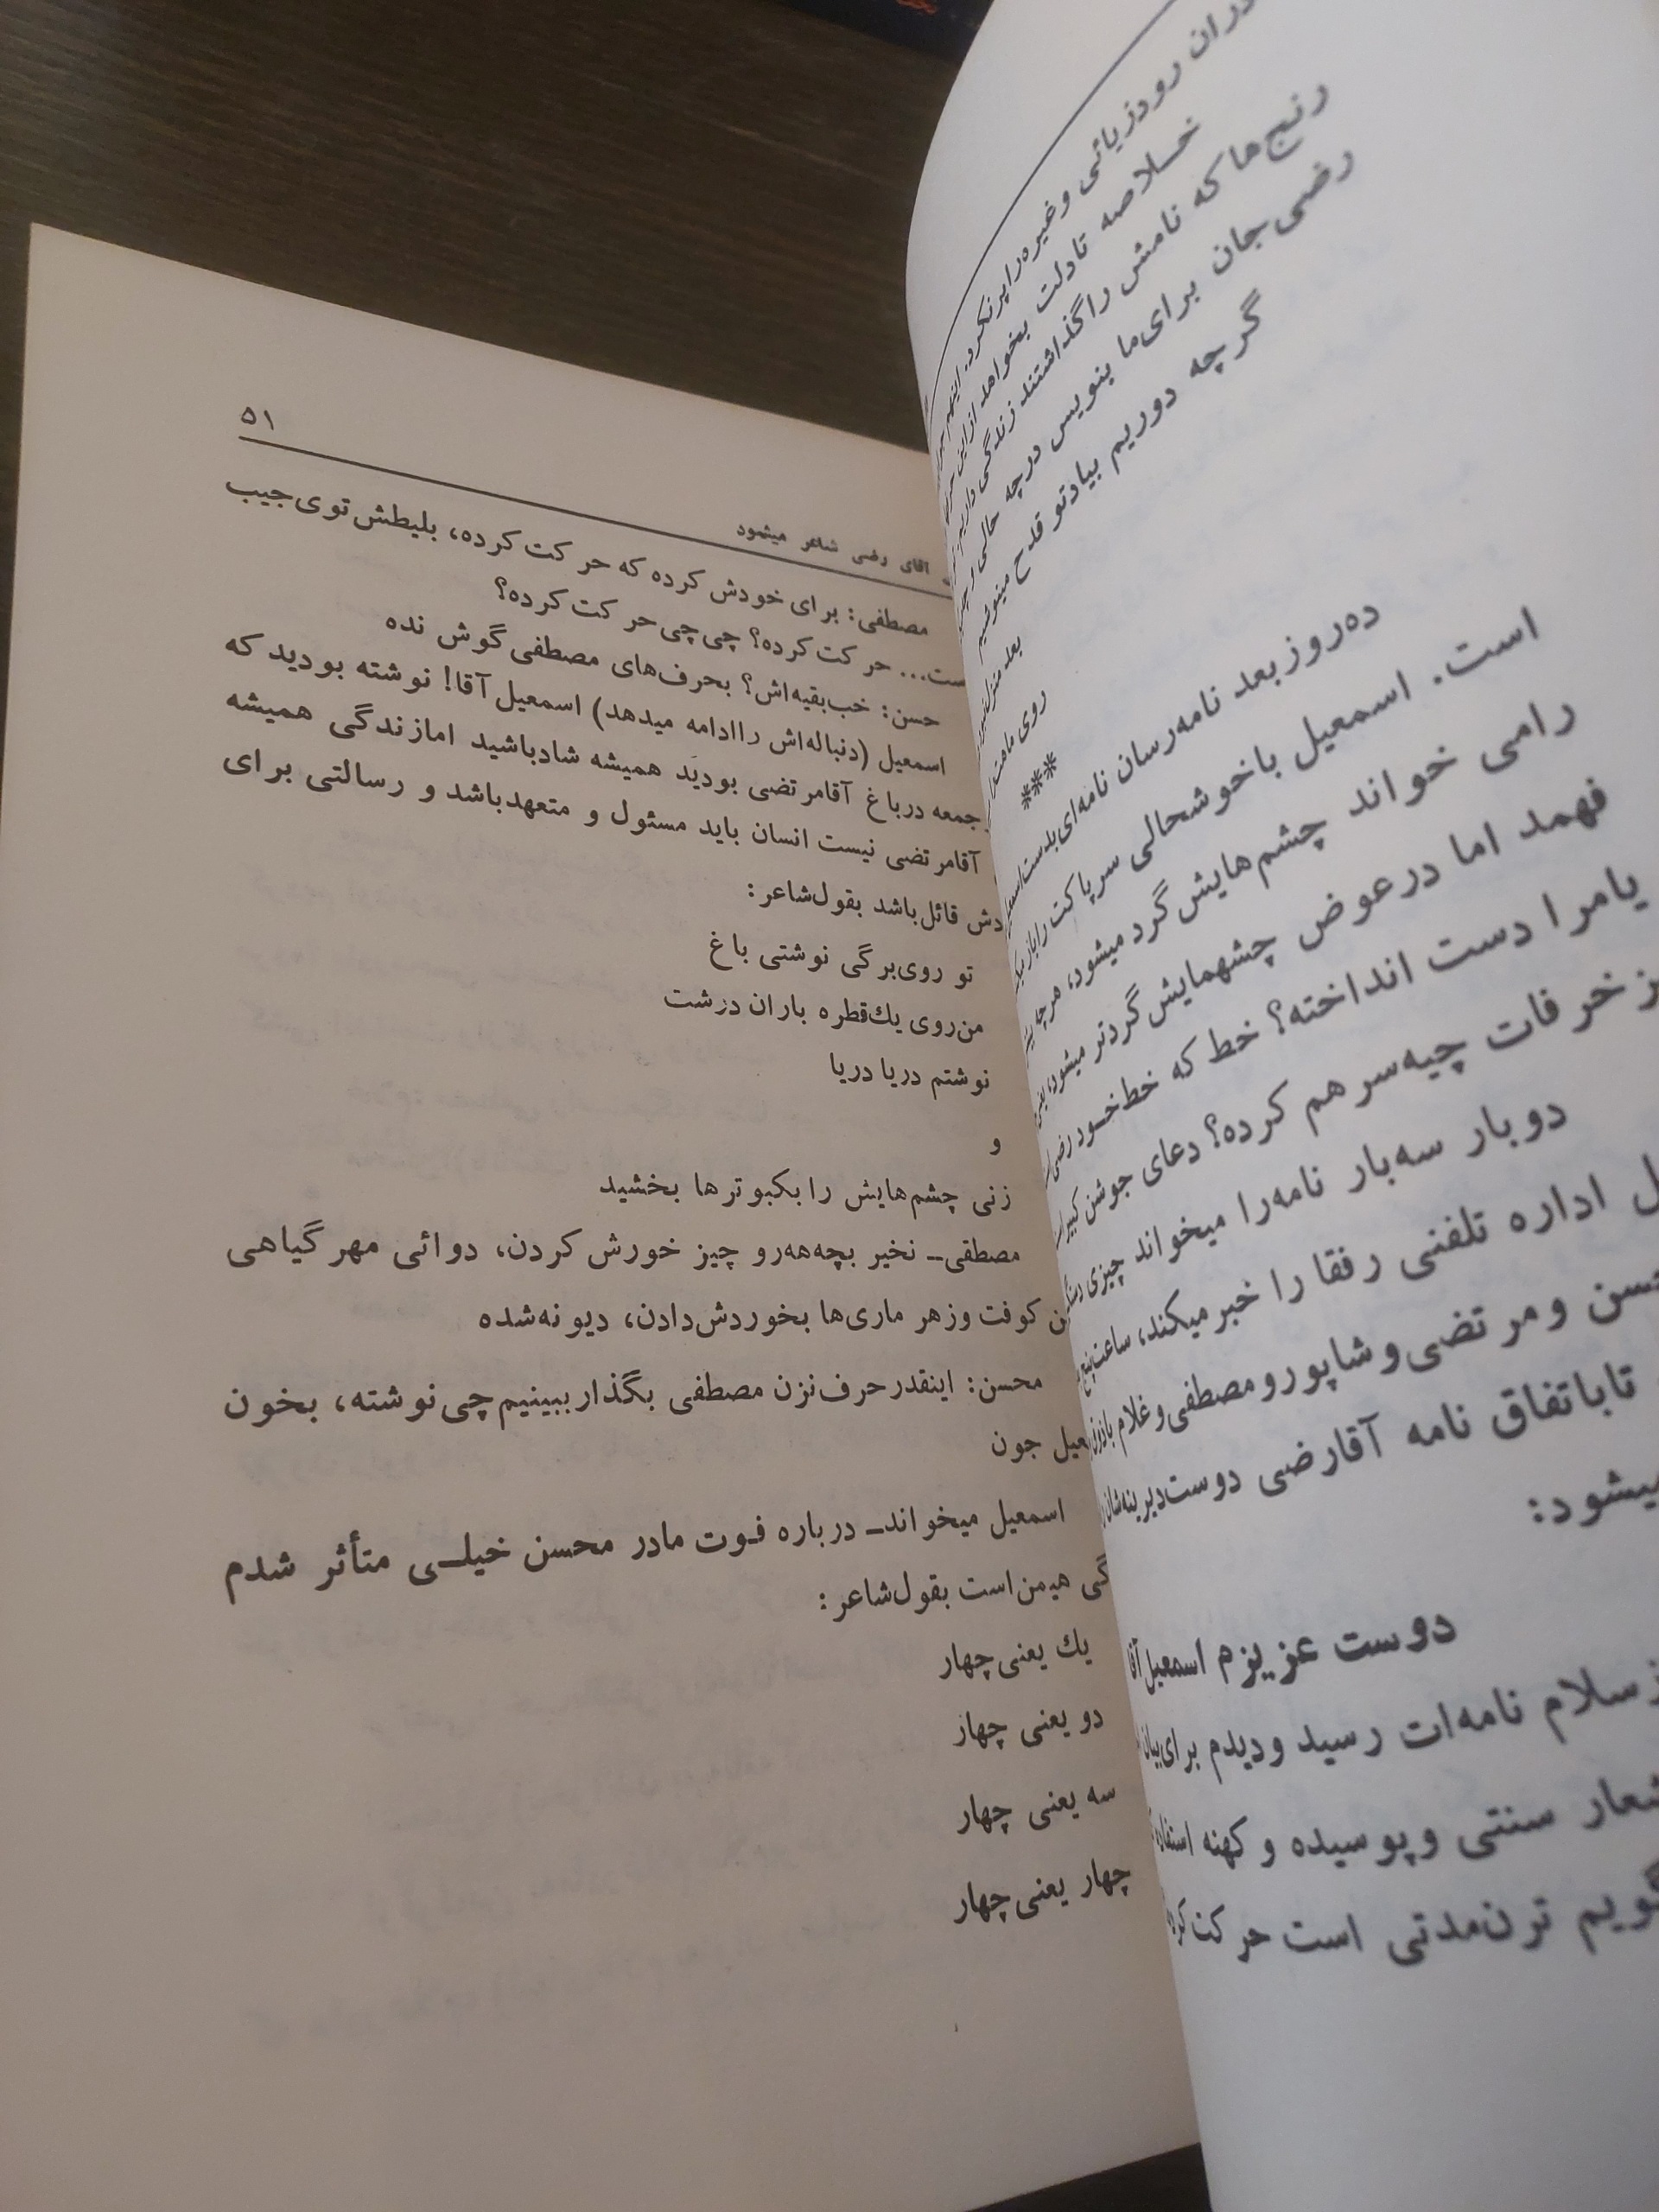 دران رودزیائی وغیره را پر نکرد. اینهم
خلاصه تادلت بخواهد ازاین
رنج‌ها که نامش را گذاشتند زندگی داریم
رضی‌جان برای‌ما بنویس درچه حالی و
گرچه دوریم بیادتو قدح مینوشیم
بعد منزل
روی ماهت
***
ده‌روز بعد نامه‌رسان نامه‌ای بدست
است. اسمعیل باخوشحالی سر پاکت را باز
رامی خواند چشم‌هایش گرد میشود، هرچه
فهمد اما درعوض چشمهایش گردتر میشود،
یامرا دست انداخته؟ خط که خط‌خود رضی
خرفات چیه‌سر هم کرده؟ دعای جوشن کبیر
دوبار سه‌بار نامه‌را میخواند چیزی
اداره تلفنی رفقا را خبر میکند، ساعت پنج
ومرتضی وشاپور و مصطفی و غلام
تاباتفاق نامه آقارضی دوست‌دیرینه‌شان
میشود:
دوست عزیزم اسمعیل آقا
سلام نامه‌ات رسید ودیدم برای بیان
سنتی وپوسیده و کهنه
ترن‌مدتی است حرکت
۵۱
آقای رضی شاعر میشود
مصطفی: برای خودش کرده که حرکت کرده، بلیطش توی‌جیب
ست... حرکت کرده؟ چی‌چی حرکت کرده؟
حسن: خب‌بقیه‌اش؟ بحرف‌های مصطفی گوش نده
اسمعیل (دنباله‌اش راادامه میدهد) اسمعیل آقا! نوشته بودید که
جمعه درباغ آقامرتضی بودید همیشه شادباشید امازندگی همیشه
آقامرتضی نیست انسان باید مسئول و متعهدباشد و رسالتی برای
دش قائل‌باشد بقول‌شاعر:
تو روی‌برگی نوشتی باغ
من‌روی یك‌قطره باران درشت
نوشتم دریا دریا
و
زنی چشم‌هایش را بکبوترها بخشید
مصطفی– نخیر بچه‌هه‌رو چیز خورش کردن، دوائی مهر گیاهی
کوفت وزهر ماری‌ها بخوردش‌دادن، دیونه‌شده
محسن: اینقدر حرف‌نزن مصطفی بگذار ببینیم چی‌نوشته، بخون
عیل جون
اسمعیل میخواند– درباره فوت مادر محسن خیلی متأثر شدم
گی هیمن‌است بقول‌شاعر:
یك یعنی چهار
دو یعنی چهار
سه یعنی چهار
چهار یعنی چهار